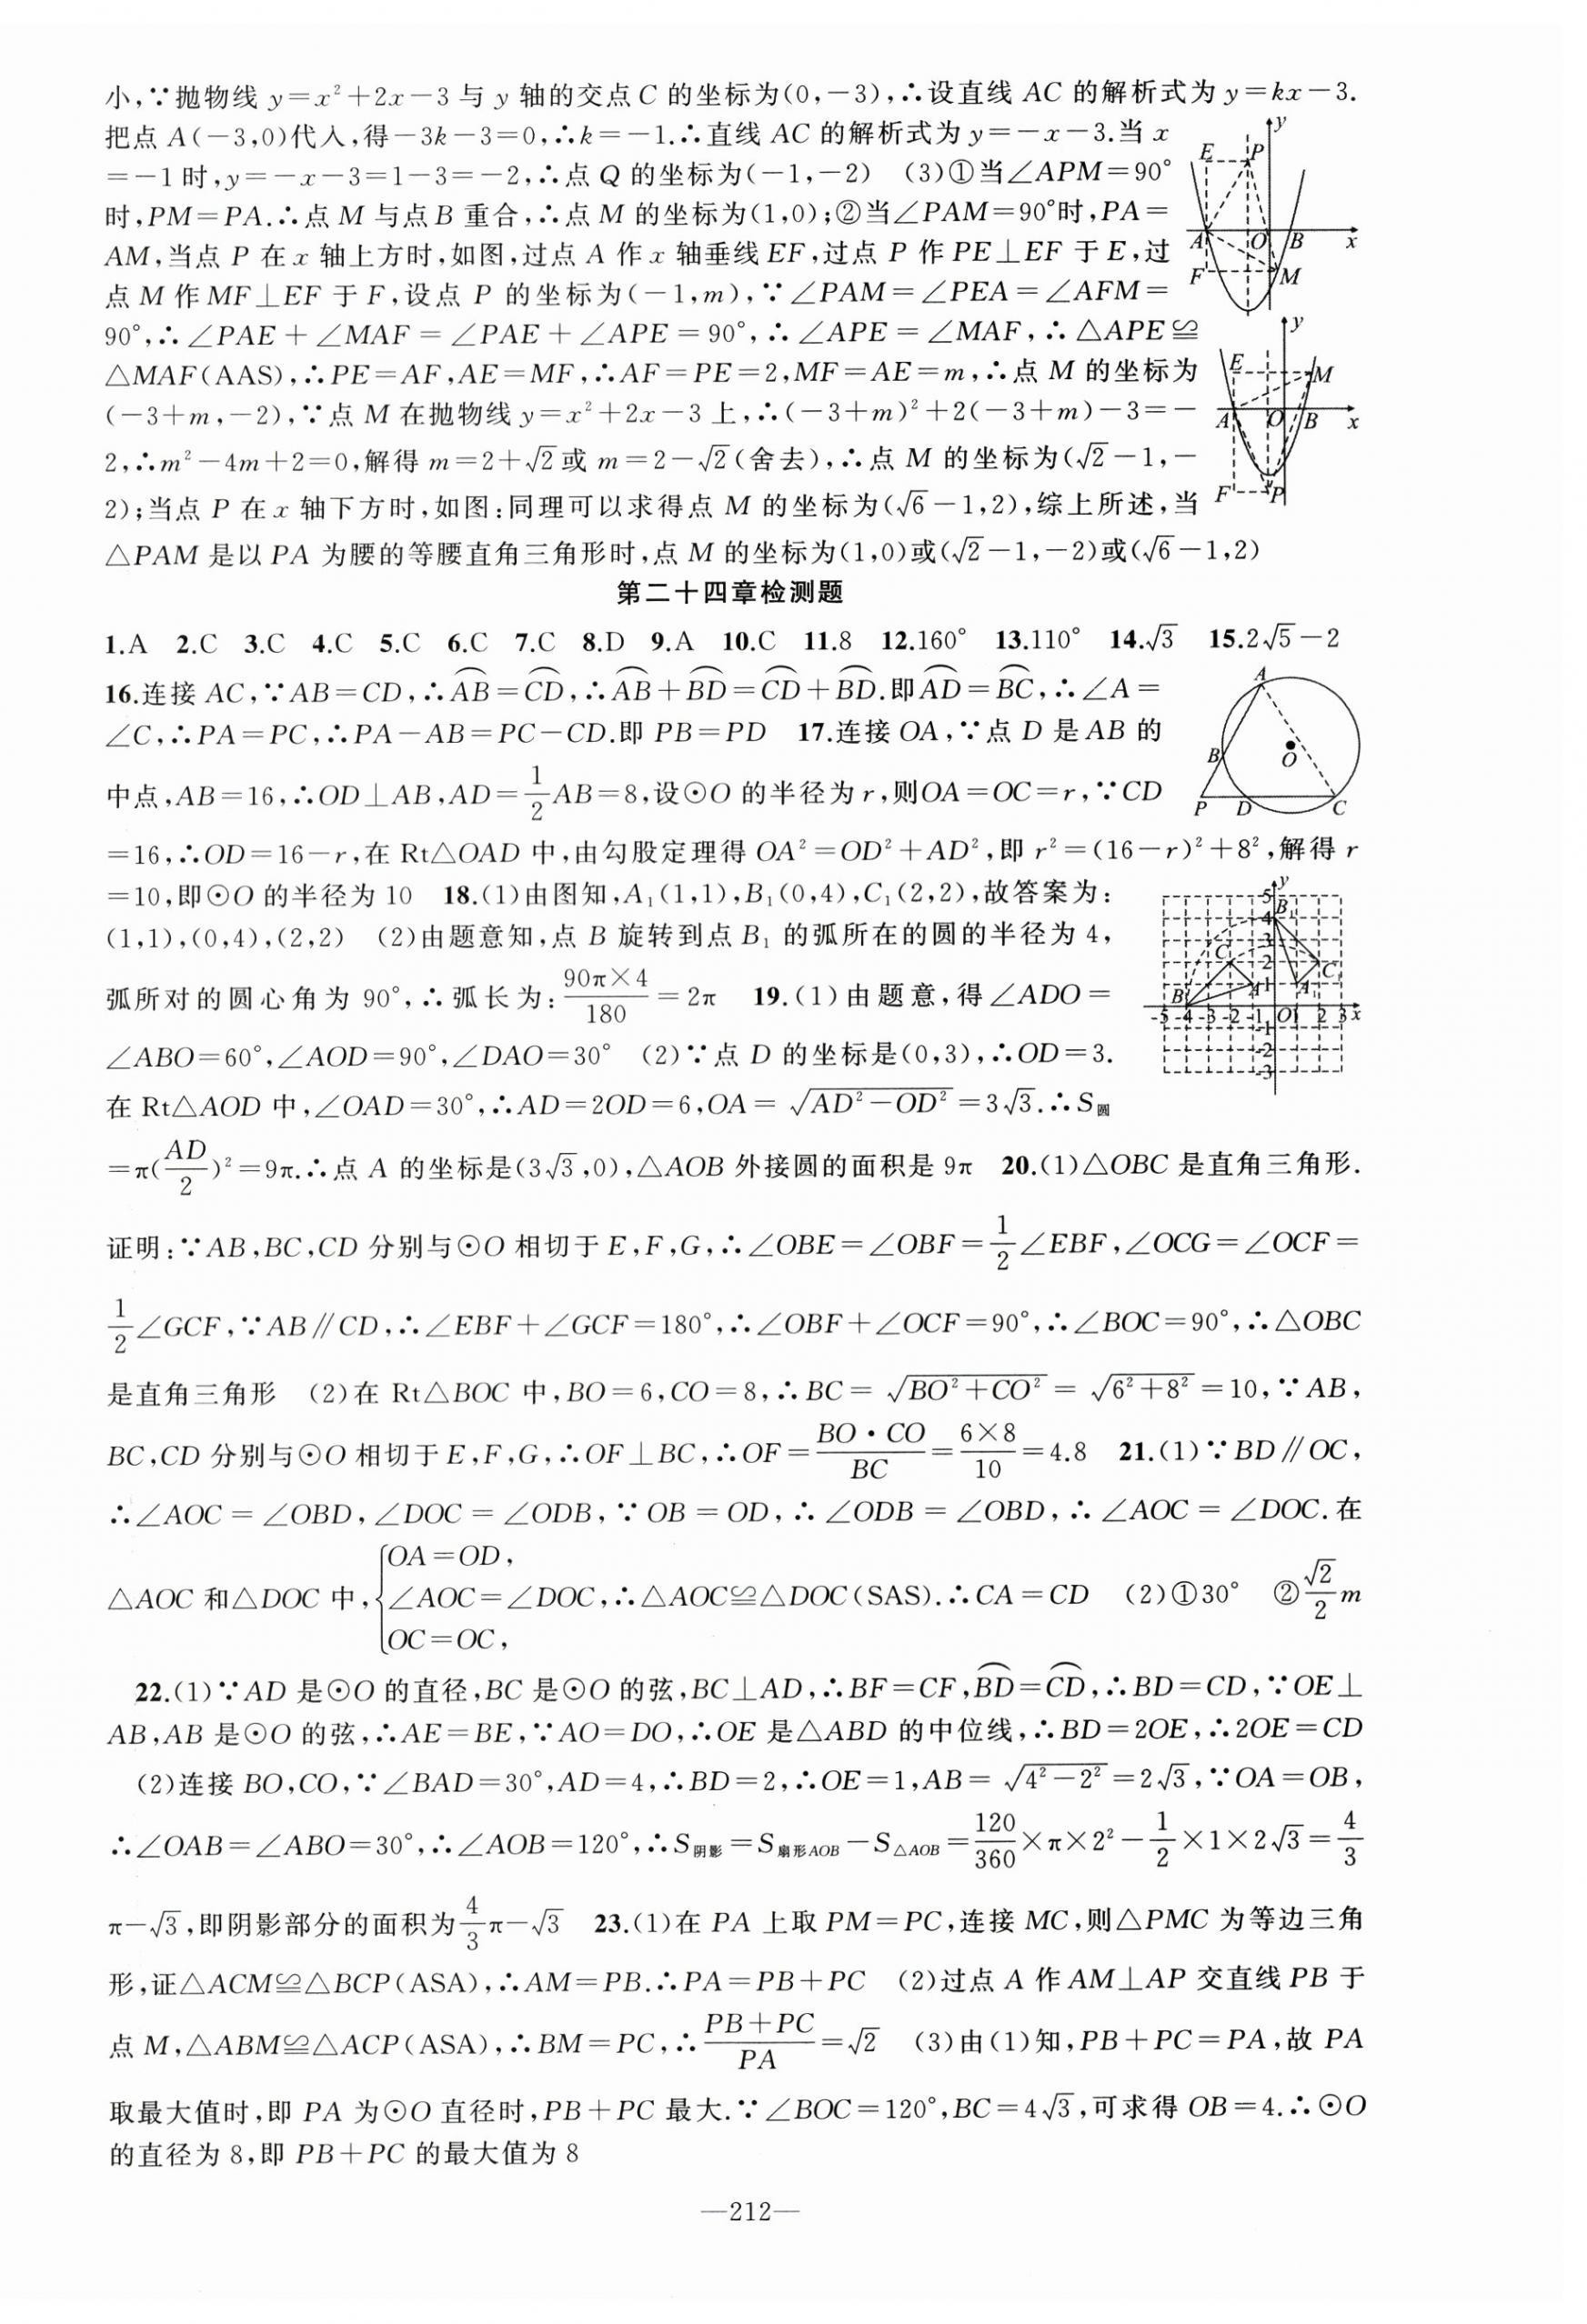 小,∵抛物线 y=x²+2x-3 与 y 轴的交点 C 的坐标为(0,-3),∴设直线 AC 的解析式为 y=kx-3.
把点 A(-3,0)代入,得-3k-3=0,∴k=-1.∴直线 AC 的解析式为 y=-x-3.当 x
=-1 时,y=-x-3=1-3=-2,∴点 Q 的坐标为(-1,-2) (3)①当∠APM=90°
时,PM=PA.∴点 M 与点 B 重合,∴点 M 的坐标为(1,0);②当∠PAM=90°时,PA=
AM,当点 P 在 x 轴上方时,如图,过点 A 作 x 轴垂线 EF,过点 P 作 PE⊥EF 于 E,过
点 M 作 MF⊥EF 于 F,设点 P 的坐标为(-1,m),∵∠PAM=∠PEA=∠AFM=
90°,∴∠PAE+∠MAF=∠PAE+∠APE=90°,∴∠APE=∠MAF,∴△APE≌
△MAF(AAS),∴PE=AF,AE=MF,∴AF=PE=2,MF=AE=m,∴点 M 的坐标为
(-3+m,-2),∵点 M 在抛物线 y=x²+2x-3 上,∴(-3+m)²+2(-3+m)-3=-
2,∴m²-4m+2=0,解得 m=2+√2或 m=2-√2(舍去),∴点 M 的坐标为(√2-1,-
2);当点 P 在 x 轴下方时,如图:同理可以求得点 M 的坐标为(√6-1,2),综上所述,当
△PAM 是以 PA 为腰的等腰直角三角形时,点 M 的坐标为(1,0)或(√2-1,-2)或(√6-1,2)
E P y
A O B x
F M
y
E M
A O B x
F P
第二十四章检测题
1.A 2.C 3.C 4.C 5.C 6.C 7.C 8.D 9.A 10.C 11.8 12.160° 13.110° 14.√3 15.2√5-2
16.连接 AC,∵AB=CD,∴⌒AB=⌒CD,∴⌒AB+⌒BD=⌒CD+⌒BD.即⌒AD=⌒BC,∴∠A=
∠C,∴PA=PC,∴PA-AB=PC-CD.即 PB=PD 17.连接 OA,∵点 D 是 AB 的
中点,AB=16,∴OD⊥AB,AD=1/2AB=8,设⊙O 的半径为 r,则OA=OC=r,∵CD
A
B O
P D C
=16,∴OD=16-r,在 Rt△OAD 中,由勾股定理得 OA²=OD²+AD²,即 r²=(16-r)²+8²,解得 r
=10,即⊙O 的半径为 10 18.(1)由图知,A₁(1,1),B₁(0,4),C₁(2,2),故答案为:
(1,1),(0,4),(2,2) (2)由题意知,点 B 旋转到点 B₁ 的弧所在的圆的半径为 4,
弧所对的圆心角为 90°,∴弧长为:90π×4/180=2π 19.(1)由题意,得∠ADO=
∠ABO=60°,∠AOD=90°,∠DAO=30° (2)∵点 D 的坐标是(0,3),∴OD=3.
在 Rt△AOD 中,∠OAD=30°,∴AD=2OD=6,OA=√(AD²-OD²)=3√3.∴S圆
=π(AD/2)²=9π.∴点 A 的坐标是(3√3,0),△AOB 外接圆的面积是 9π 20.(1)△OBC 是直角三角形.
证明:∵AB,BC,CD 分别与⊙O 相切于 E,F,G,∴∠OBE=∠OBF=1/2∠EBF,∠OCG=∠OCF=
1/2∠GCF,∵AB∥CD,∴∠EBF+∠GCF=180°,∴∠OBF+∠OCF=90°,∴∠BOC=90°,∴△OBC
是直角三角形 (2)在 Rt△BOC 中,BO=6,CO=8,∴BC=√(BO²+CO²)=√(6²+8²)=10,∵AB,
BC,CD 分别与⊙O 相切于 E,F,G,∴OF⊥BC,∴OF=BO·CO/BC=6×8/10=4.8 21.(1)∵BD∥OC,
∴∠AOC=∠OBD,∠DOC=∠ODB,∵OB=OD,∴∠ODB=∠OBD,∴∠AOC=∠DOC.在
△AOC 和△DOC 中,{OA=OD, ∠AOC=∠DOC, OC=OC, ∴△AOC≌△DOC(SAS).∴CA=CD (2)①30° ②√2/2 m
22.(1)∵AD 是⊙O 的直径,BC 是⊙O 的弦,BC⊥AD,∴BF=CF,⌒BD=⌒CD,∴BD=CD,∵OE⊥
AB,AB 是⊙O 的弦,∴AE=BE,∵AO=DO,∴OE 是△ABD 的中位线,∴BD=2OE,∴2OE=CD
(2)连接 BO,CO,∵∠BAD=30°,AD=4,∴BD=2,∴OE=1,AB=√(4²-2²)=2√3,∵OA=OB,
∴∠OAB=∠ABO=30°,∴∠AOB=120°,∴S阴影=S扇形AOB-S△AOB=120/360×π×2²-1/2×1×2√3=4/3
π-√3,即阴影部分的面积为4/3π-√3 23.(1)在 PA 上取 PM=PC,连接 MC,则△PMC 为等边三角
形,证△ACM≌△BCP(ASA),∴AM=PB.∴PA=PB+PC (2)过点 A 作 AM⊥AP 交直线 PB 于
点 M,△ABM≌△ACP(ASA),∴BM=PC,∴(PB+PC)/PA=√2 (3)由(1)知,PB+PC=PA,故 PA
取最大值时,即 PA 为⊙O 直径时,PB+PC 最大.∵∠BOC=120°,BC=4√3,可求得 OB=4.∴⊙O
的直径为 8,即 PB+PC 的最大值为 8
—212—